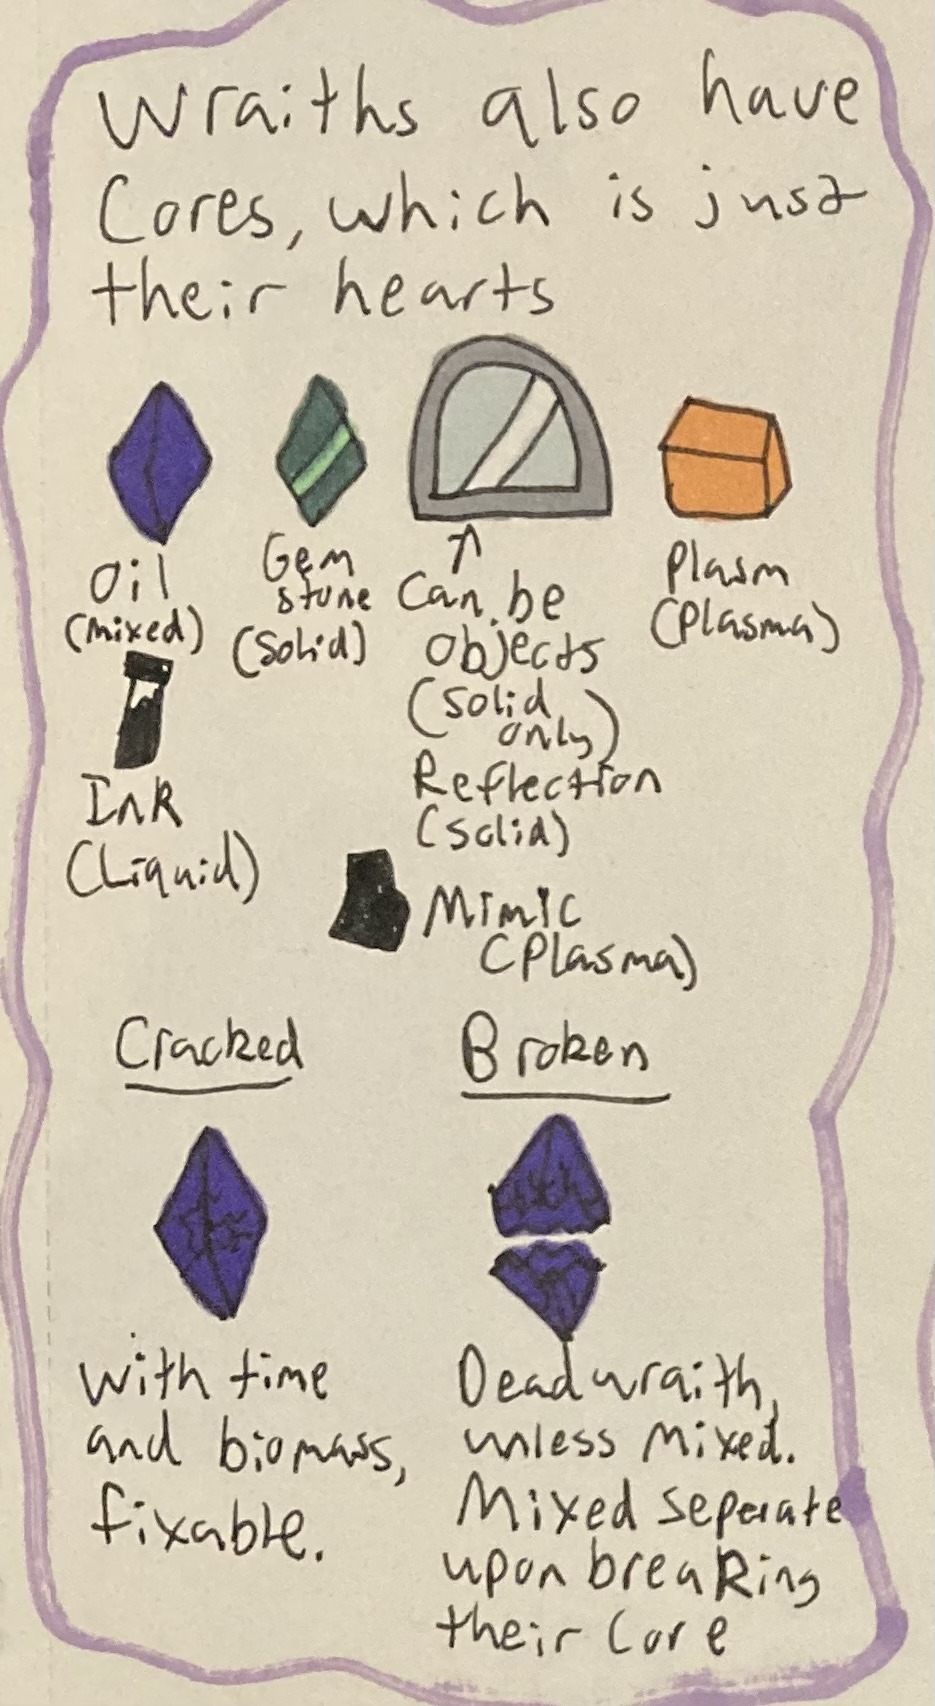 Wraiths also have
Cores, which is just
their hearts
Oil
(mixed)
Gem
stone
(Solid)
Can be
objects
(solid
only)
Reflection
(solid)
Plasm
(Plasma)
Ink
(Liquid)
Mimic
(Plasma)
Cracked
With time
and biomass,
fixable.
Broken
Dead wraith,
unless Mixed.
Mixed seperate
upon breaking
their Core